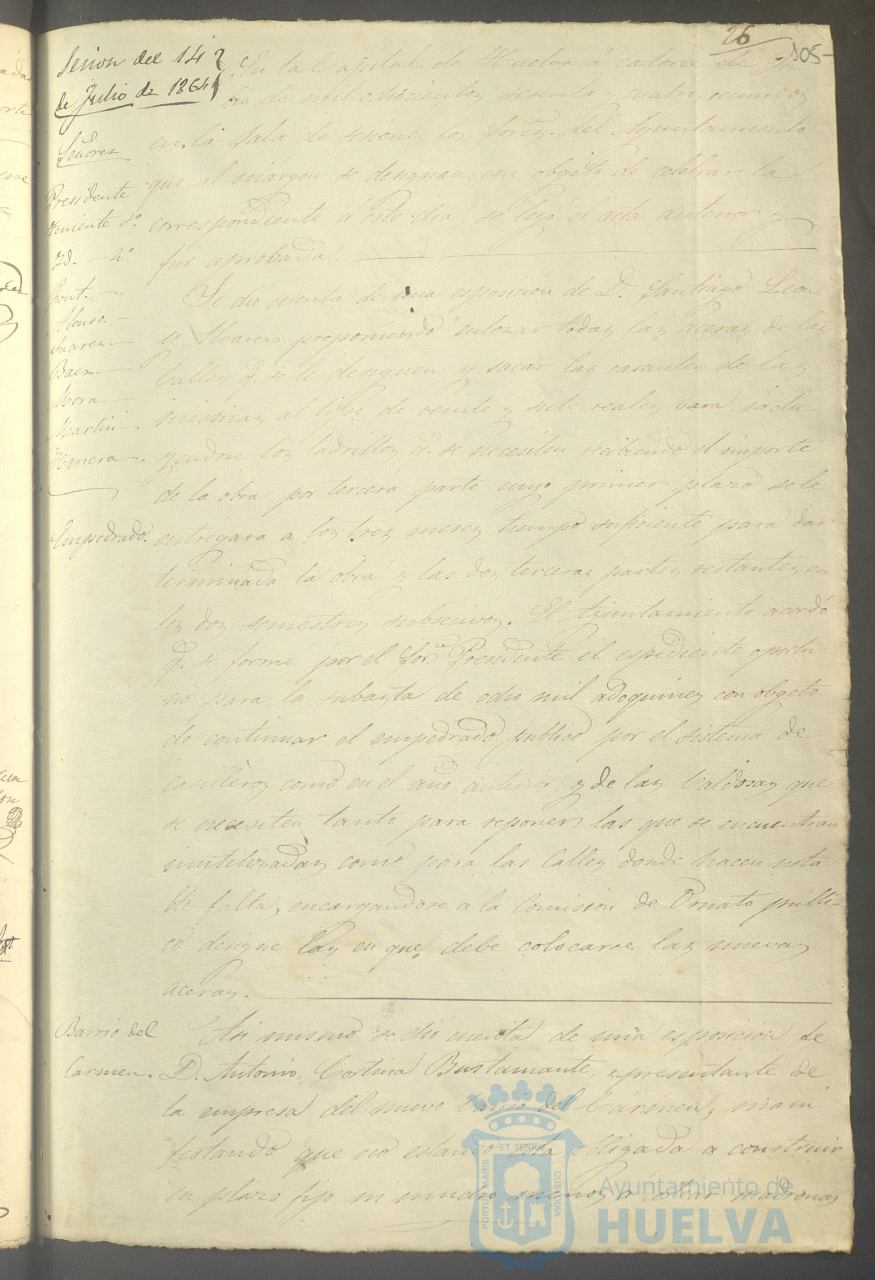 26
105
Sesion del 14
de Julio de 1864
En la Capital de Huelva á catorce de Ju
lio de mil ochocientos sesenta y cuatro, reunidos
Señores
en la Sala de sesiones los Sores. del Ayuntamiento
Presidente
que al margen se designan, con objeto de celebrar la
Teniente 1º
correspondiente á este dia, se leyó el acta anterior y
Yd. — 2º
fue aprobada.
Pont.
Alonso.
Suarez
Baez.
Mora
Martin
Herrera
Se dió cuenta de una esposicion de D. Santiago Leon
y Alvarez, proponiendo enlozar todas las aceras de las
Calles q. se le designen y sacar las rasantes de las
mismas al tipo de veinte y siete reales vara inclu
yendose los ladrillos q. se necesiten recibiendo el importe
de la obra por tercera parte cuyo primer plazo se le
Empedrado.
entregara a los tres meses tiempo suficiente para dar
terminada la obra y las dos terceras partes restantes en
los dos semestres subsecivos. El Ayuntamiento acordó
q. se forme por el Sor. Presidente el espediente oportu
no para la subasta de ocho mil adoquines con objeto
de continuar el empedrado publico por el sistema de
casilleros como en el año anterior, y de las baldosas que
se necesiten tanto para reponer las que se encuentran
inutilizadas como para las Calles donde hacen nota
ble falta, encargandose á la Comision de Ornato públi-
co designe las en que debe colocarse las nuevas
aceras.
Barrio del
Carmen.
Asi mismo se dió cuenta de una esposicion de
D. Antonio Cortina Bustamante, representante de
la empresa del nuevo barrio del Carmen, mani
festando que no estando esta obligada a construir
en plazo fijo ni
PORTUS MARIS
ET TERRAE
CUSTODIA
Ayuntamiento de
HUELVA